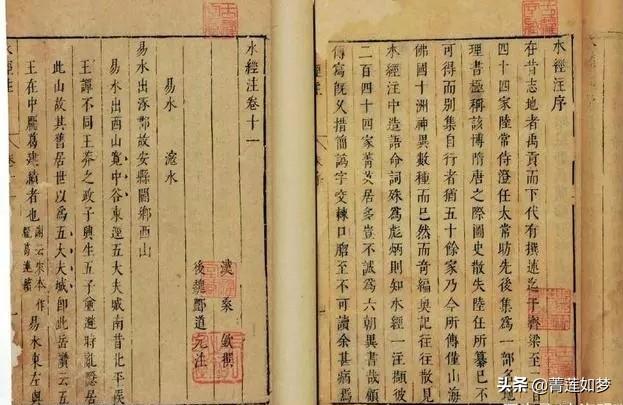 水經注序
在昔志地者禹貢而下代有撰述迄于齊梁至二百
四十四家陸常侍澄任太常昉先後集爲一部名地
理書極稱該博隋唐之際圖史散失陸任所纂已不
可得而别集自行者猶五十餘家乃今所傳僅山海
佛國十洲神異數種而已然而奇編奥記往往散見
水經注中造語命詞殊爲彪炳則知水經一注撷彼
二百四十四家菁英居多豈不誠爲六朝異書哉顧
傳寫既久措簡譌字交棘口磨至不可讀余甚病焉
水經注卷十一
易水 滱水
漢 桑 欽撰
後魏酈道元注
易水出涿郡故安縣閻鄉西山
易水出西山寬中谷東逕五大夫城南昔北平侯
王譚不同王莽之政子興生五子並避時亂隱居
此山故其舊居世以爲五大夫城卽此岳讚云五
王在中龐葛連續者也
謝云宋本作
龍葛連續
易水東左與
头条 @菁莲如梦